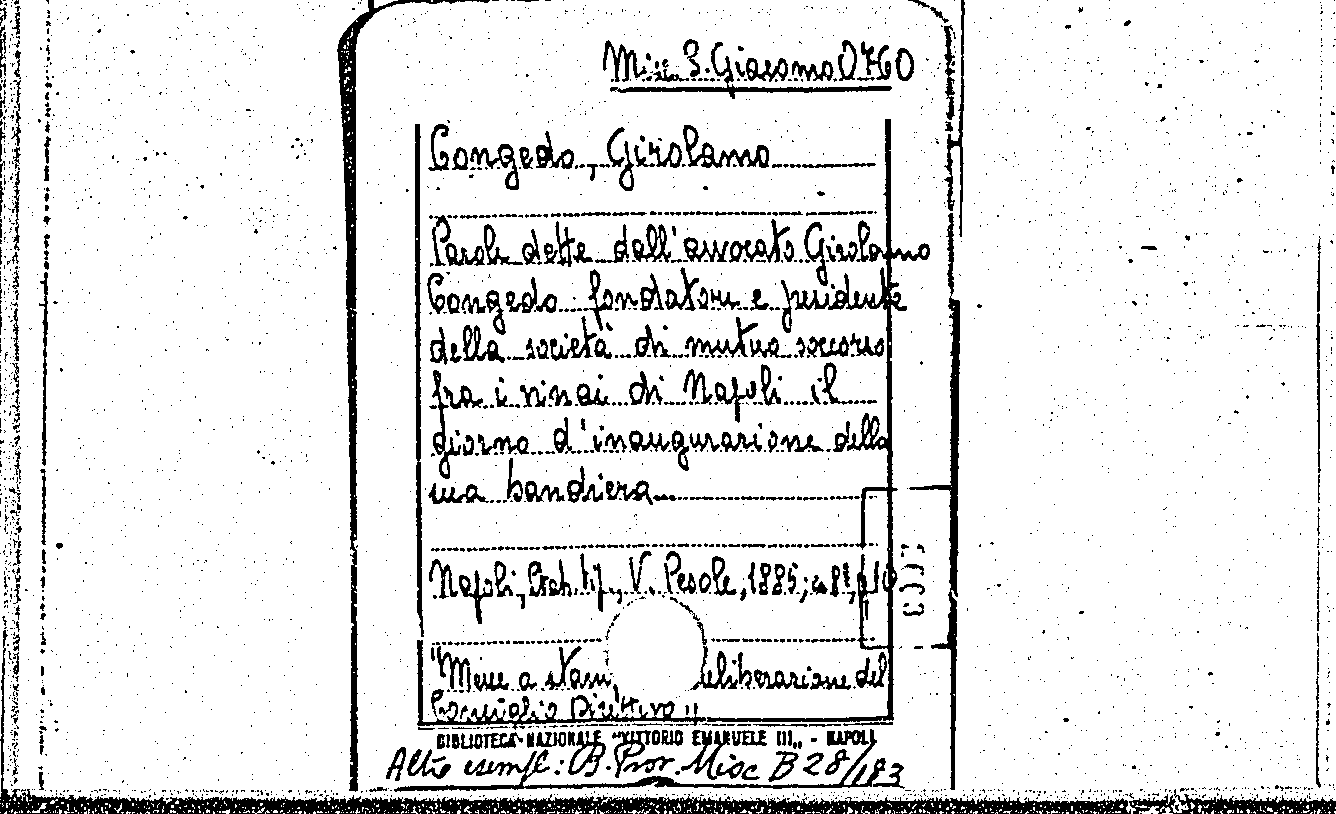 Misc. S. Giacomo O 760
Congedo, Girolamo
Parole dette dall'avvocato Girolamo
Congedo fondatore e presidente
della società di mutuo soccorso
fra i vinai di Napoli il
giorno d'inaugurazione della
sua bandiera...
Napoli, Stab. tip., V. Pesole, 1885; in 8º, p. 10
"Messe a stam eliberazione del
Consiglio Direttivo"
BIBLIOTECA NAZIONALE "VITTORIO EMANUELE III„ - NAPOLI
Altro esempl.: B. Prov. Misc B 28/183